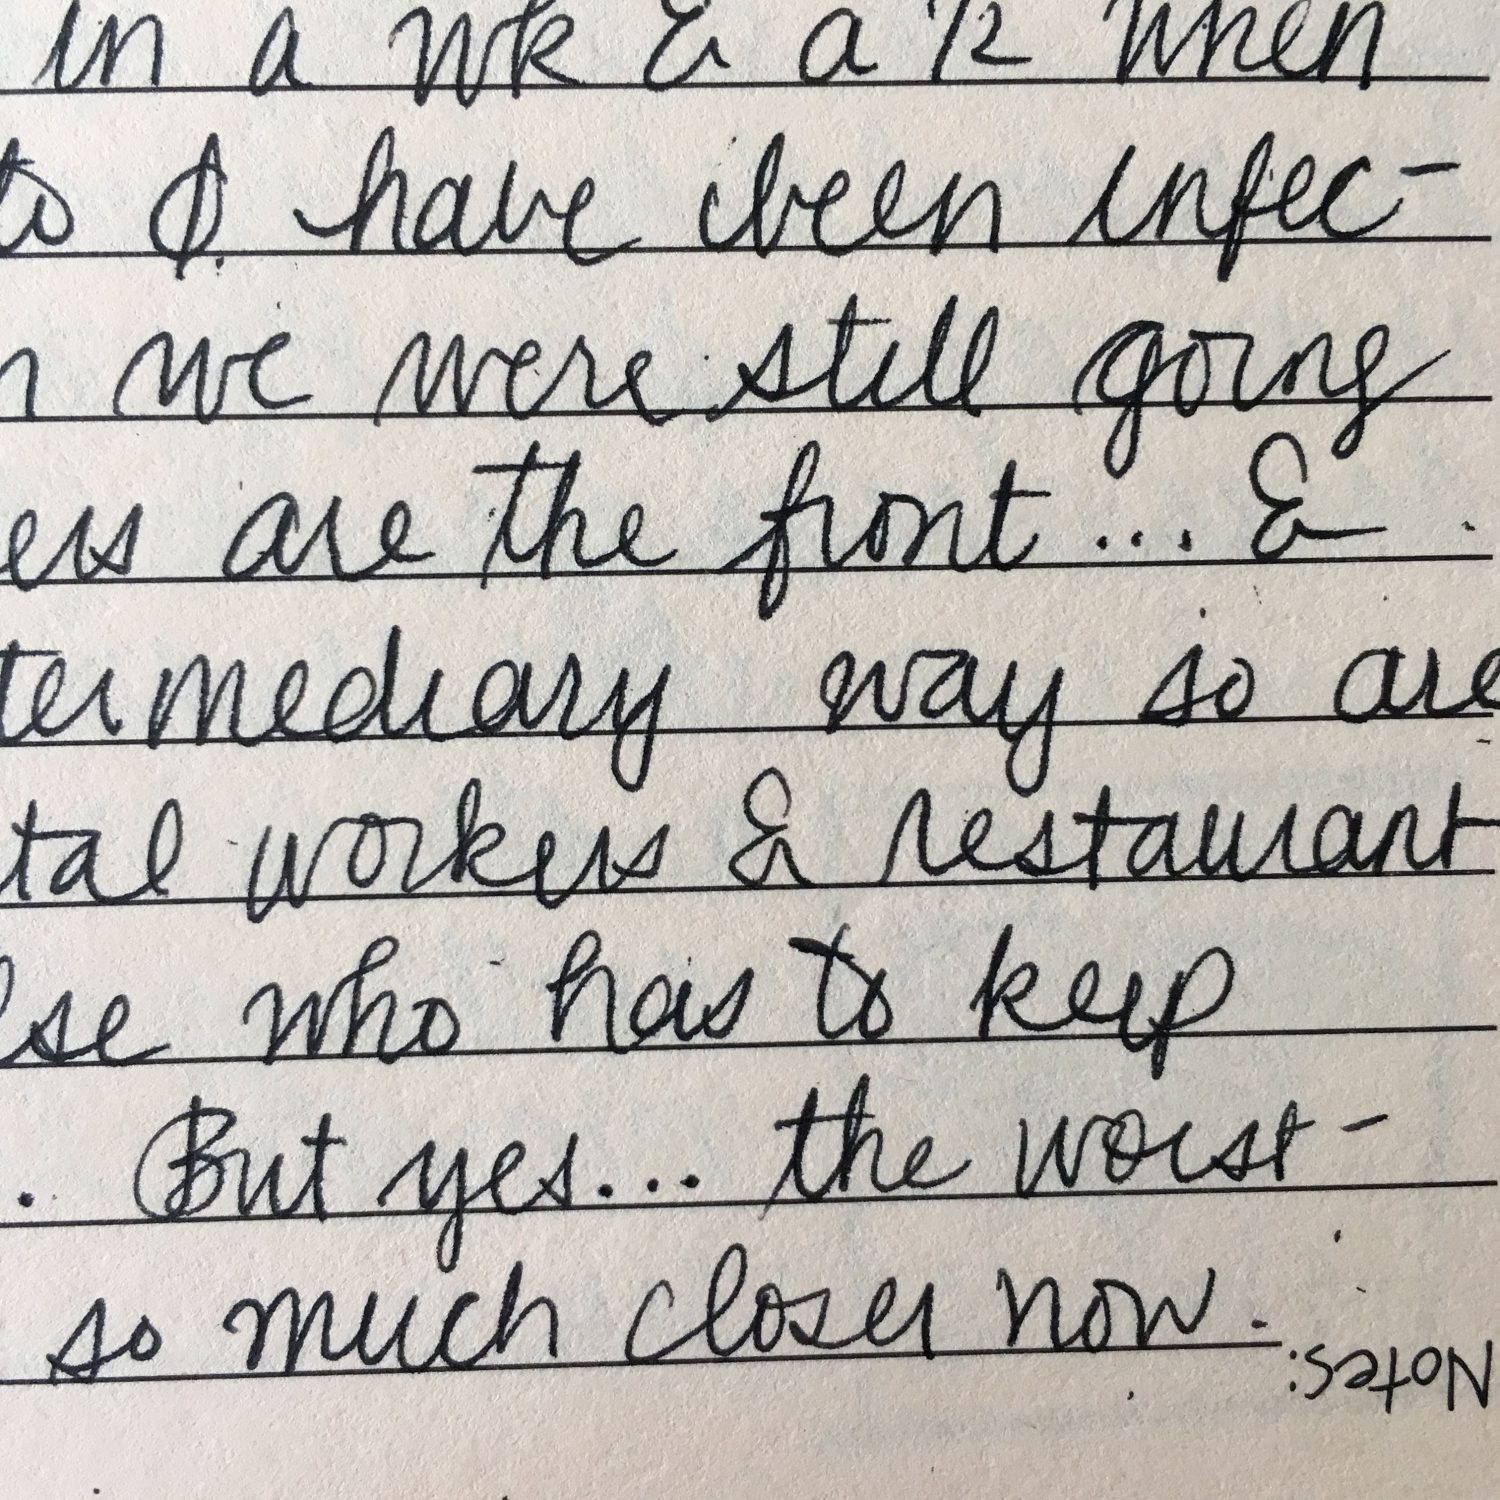 in a wk & a 1/2 when
to ∅ have been infec-
n we were still going
ers are the front... &
termediary way so are
tal workers & restaurant
lse who has to keep
. But yes... the worst-
so much closer now.
Notes: